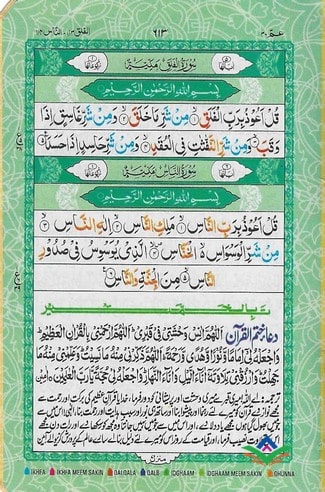 عمّ ۳۰ ٦١٣ الفلق ١١٣، الناس ١١٤
اٰيَاتُهَا ٥ سُوْرَةُ الْفَلَقِ مَدَنِيَّةٌ رُكُوْعُهَا ١
بِسْمِ اللّٰهِ الرَّحْمٰنِ الرَّحِيْمِ
قُلْ اَعُوْذُ بِرَبِّ الْفَلَقِ ۙ١ مِنْ شَرِّ مَا خَلَقَ ۙ٢ وَمِنْ شَرِّ غَاسِقٍ اِذَا
وَقَبَ ۙ٣ وَمِنْ شَرِّ النَّفّٰثٰتِ فِي الْعُقَدِ ۙ٤ وَمِنْ شَرِّ حَاسِدٍ اِذَا حَسَدَ ٥
اٰيَاتُهَا ٦ سُوْرَةُ النَّاسِ مَدَنِيَّةٌ رُكُوْعُهَا ١
بِسْمِ اللّٰهِ الرَّحْمٰنِ الرَّحِيْمِ
قُلْ اَعُوْذُ بِرَبِّ النَّاسِ ۙ١ مَلِكِ النَّاسِ ۙ٢ اِلٰهِ النَّاسِ ۙ٣
مِنْ شَرِّ الْوَسْوَاسِ ۙ الْخَنَّاسِ ۙ٤ الَّذِيْ يُوَسْوِسُ فِيْ صُدُوْرِ
النَّاسِ ۙ٥ مِنَ الْجِنَّةِ وَالنَّاسِ ٦
دعائے ختم القرآن اَللّٰهُمَّ اٰنِسْ وَحْشَتِيْ فِيْ قَبْرِيْ اَللّٰهُمَّ ارْحَمْنِيْ بِالْقُرْاٰنِ الْعَظِيْمِ
وَاجْعَلْهُ لِيْ اِمَامًا وَّنُوْرًا وَّهُدًى وَّرَحْمَةً اَللّٰهُمَّ ذَكِّرْنِيْ مِنْهُ مَا نَسِيْتُ وَعَلِّمْنِيْ مِنْهُ مَا
جَهِلْتُ وَارْزُقْنِيْ تِلَاوَتَهٗ اٰنَآءَ الَّيْلِ وَاٰنَآءَ النَّهَارِ وَاجْعَلْهُ لِيْ حُجَّةً يَّا رَبَّ الْعٰلَمِيْنَ اٰمین
منزل
IKHFA IKHFA MEEM SAKIN QALQALA QALB IDGHAAM IDGHAAM MEEM SAKIN GHUNNA